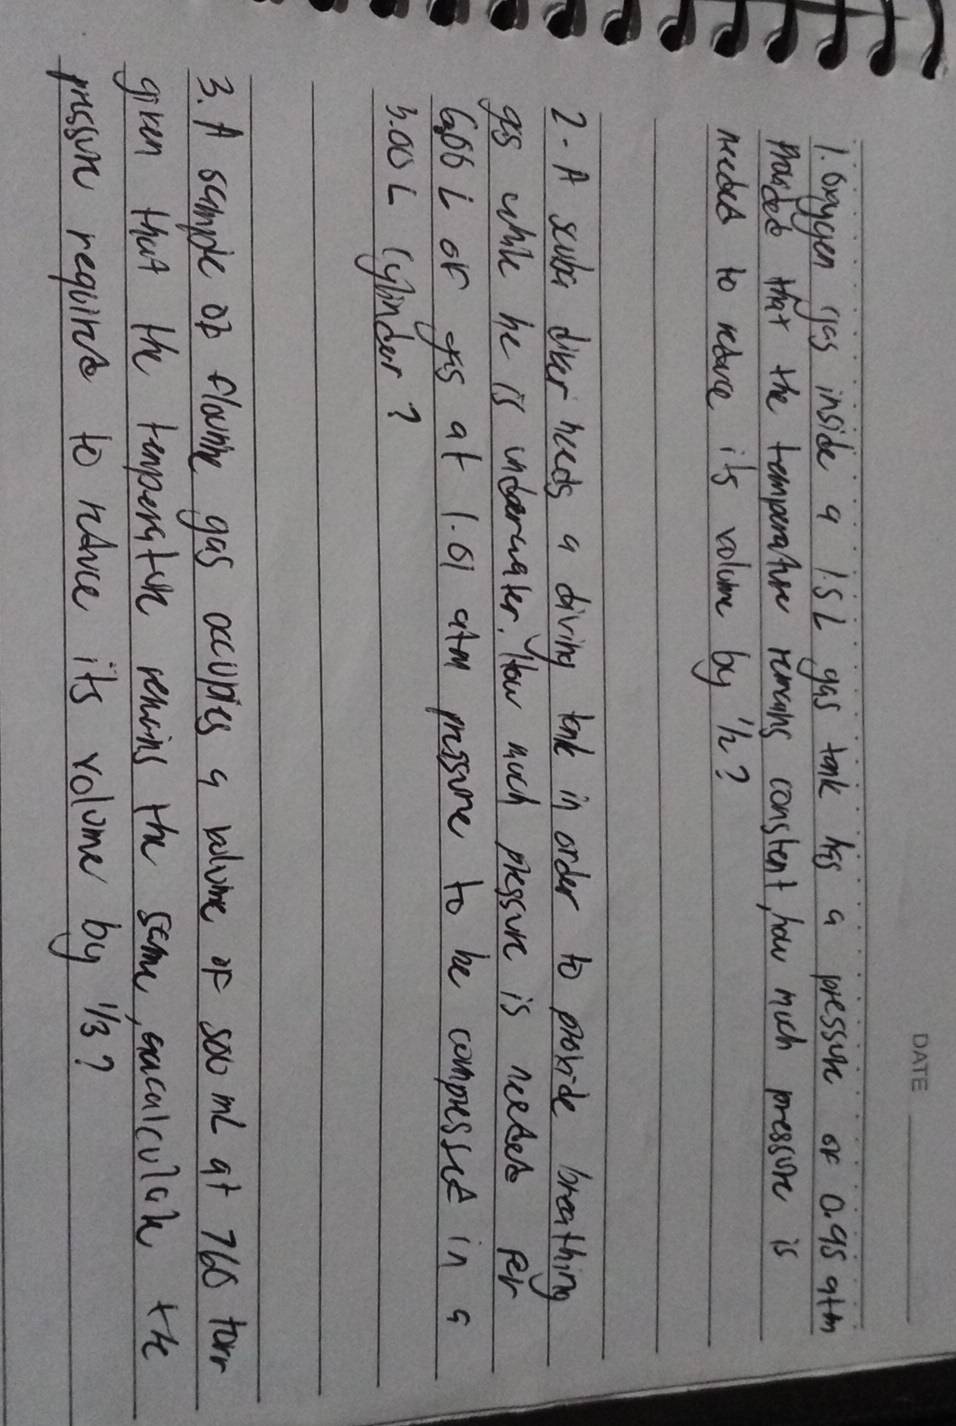 DATE
1. Oxygyen gas inside a 1.5 L gas tank has a pressure of 0.95 atm
Provided that the temperature remains constant, how much pressure is
needed to reduce its volume by 1/2?
2- A scuba diver needs a diving tank in order to provide breathing
gas while he is underwater. How much pressure is needed for
6.00 L of gas at 1.01 atm pressure to be compressed in a
3.00 L cylinder?
3. A sample of flourine gas occupies a volume of 500 mL at 760 torr
given that the temperature remains the same, calculate the
pressure required to reduce its volume by 1/3?